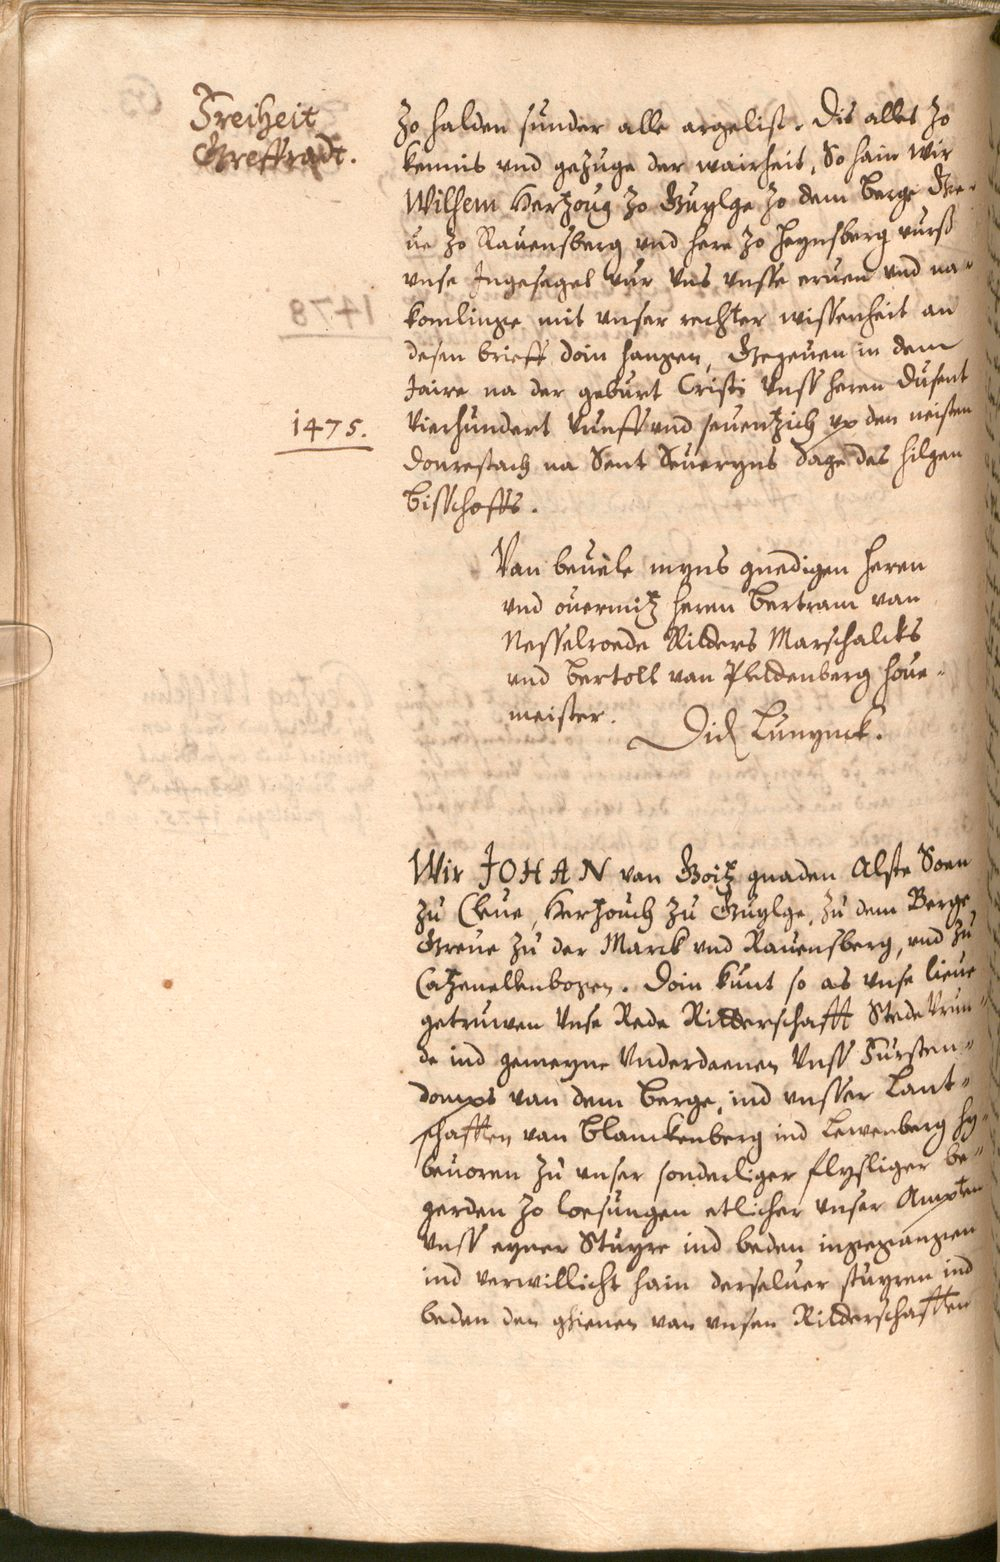 Freiheit
Greffradt.
zo halden sunder alle argelist. Dis alles zo
kennis vnd gezuge der wairheit, So hain wir
Wilhem Hertzoug zo Guylge zo dem Berge Gre-
ue zo Rauensberg vnd here zo Heynsberg vurß
vnse Ingesegel vur vns vnsse eruen vnd na-
komlinge mit vnser rechter wissenheit an
desen brieff doin hangen, Gegeuen in dem
Jaire na der geburt Cristi vnss heren dusent
1475.
vierhundert vunff vnd seuentzich vp den neisten
donrestach na Sent Seueryns dage des hilgen
bisschoffs.
Van beuele myns gnedigen heren
vnd ouermitz heren Bertram van
Nesselroede Ridders Marschalcks
vnd Bertolt van Plettenberg houe-
meister.
Did Lunynck.
Wir JOHAN van Goitz gnaden Alste Soen
zu Cleue, Hertzouch zu Guylge, zu dem Berge
Greue zu der Marck vnd Rauensberg, vnd zu
Catzenellenbogen. Doin kunt so as vnse lieue
getruwen vnse Rede Ridderschafft Stede Vrun-
de ind gemeyne Vnderdaenen vnss Fursten-
domps van dem Berge, ind vnsser Lant-
schafften van Blanckenberg ind Lewenberg hy-
beuoren zu vnser sonderliger flysliger be-
gerden zo loesungen etlicher vnser Ampten
vnss eyner Stuyre ind beden ingegangen
ind verwillicht hain derseluer stuyren ind
beden den ghienen van vnsen Ridderschafften